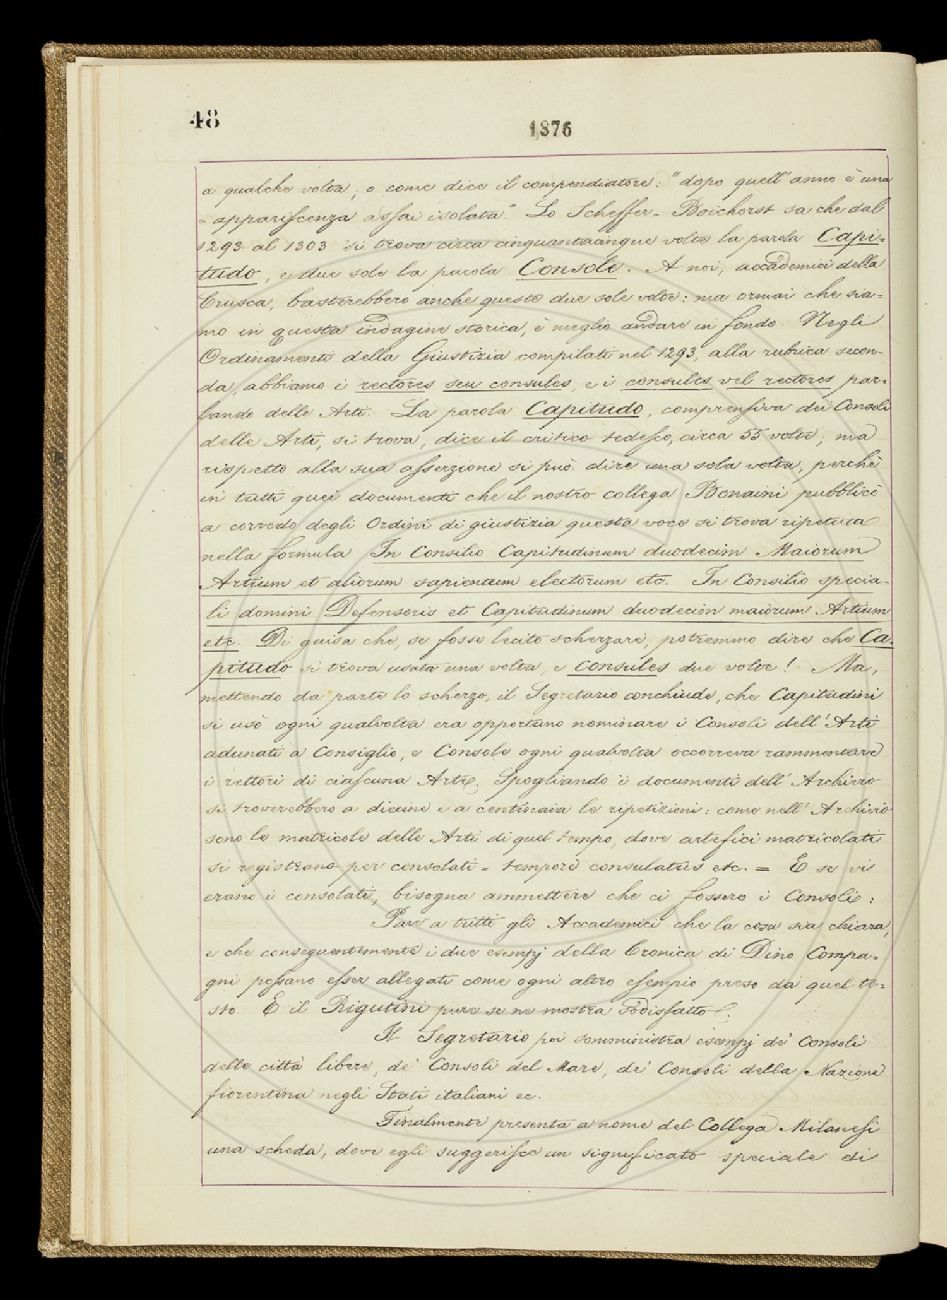 48
1876
a qualche volta; o come dice il compendiatore: "dopo quell'anno è una
= appariscenza assai isolata". Lo Scheffer-Boichorst sa che dal
1293 al 1303 si trova circa cinquantacinque volte la parola Capi-
tudo, e due sole la parola Console. A noi, accademici della
Crusca, basterebbero anche queste due sole volte: ma ormai che sia-
mo in questa indagine storica, è meglio andare in fondo. Negli
Ordinamenti della Giustizia compilati nel 1293, alla rubrica secon-
da, abbiamo i rectores seu consules, e i consules vel rectores par-
lando delle Arti. La parola Capitudo, comprensiva dei Consoli
delle Arti, si trova, dice il critico tedesco, circa 55 volte; ma
rispetto alla sua asserzione si può dire una sola volta, perchè
in tutti quei documenti che il nostro collega Bonaini pubblicò
a corredo degli Ordini di giustizia questa voce si trova ripetuta
nella formula In Consilio Capitudinum duodecim Maiorum
Artium et aliorum sapientum electorum etc. In Consilio specia-
li domini Defensoris et Capitudinum duodecim maiorum Artium
etc. Di guisa che, se fosse lecito scherzare, potremmo dire che Ca-
pitudo si trova usata una volta, e consules due volte! Ma,
mettendo da parte lo scherzo, il Segretario conchiude, che Capitudini
si usò ogni qualvolta era opportuno nominare i Consoli dell'Arti
adunati a Consiglio, e Console ogni qualvolta occorreva rammentare
i rettori di ciascuna Arte. Spogliando i documenti dell'Archivio
si troverebbero a diecine e a centinaia le ripetizioni: come nell'Archivio
sono le matricole delle Arti di quel tempo, dove artefici matricolati
si registrano per consolati = tempore consulatus etc. = E se vi
erano i consolati, bisogna ammettere che ci fossero i Consoli:
Par a tutti gli Accademici che la cosa sia chiara,
e che conseguentemente i due esempj della Cronica di Dino Compa-
gni possano esser allegati come ogni altro esempio preso da quel te-
sto. E il Rigutini pure se ne mostra sodisfatto.
Il Segretario poi somministra esempj de' Consoli
delle città libere, de' Consoli del Mare, de' Consoli della Nazione
fiorentina negli Stati italiani ec.
Finalmente presenta a nome del Collega Milanesi
una scheda, dove egli suggerisce un significato speciale di